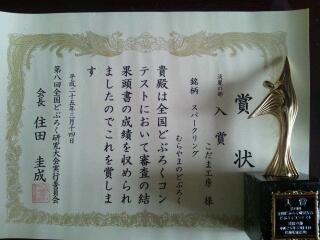 賞状
淡麗の部
入賞
こだま工房 様
銘柄 スパークリング
むらやまのどぶろく
貴殿は全国どぶろくコン
テストにおいて審査の結
果頭書の成績を収められ
ましたのでこれを賞しま
す
平成二十五年三月十四日
第八回全国どぶろく研究大会実行委員会
会長 住田 圭成
入賞